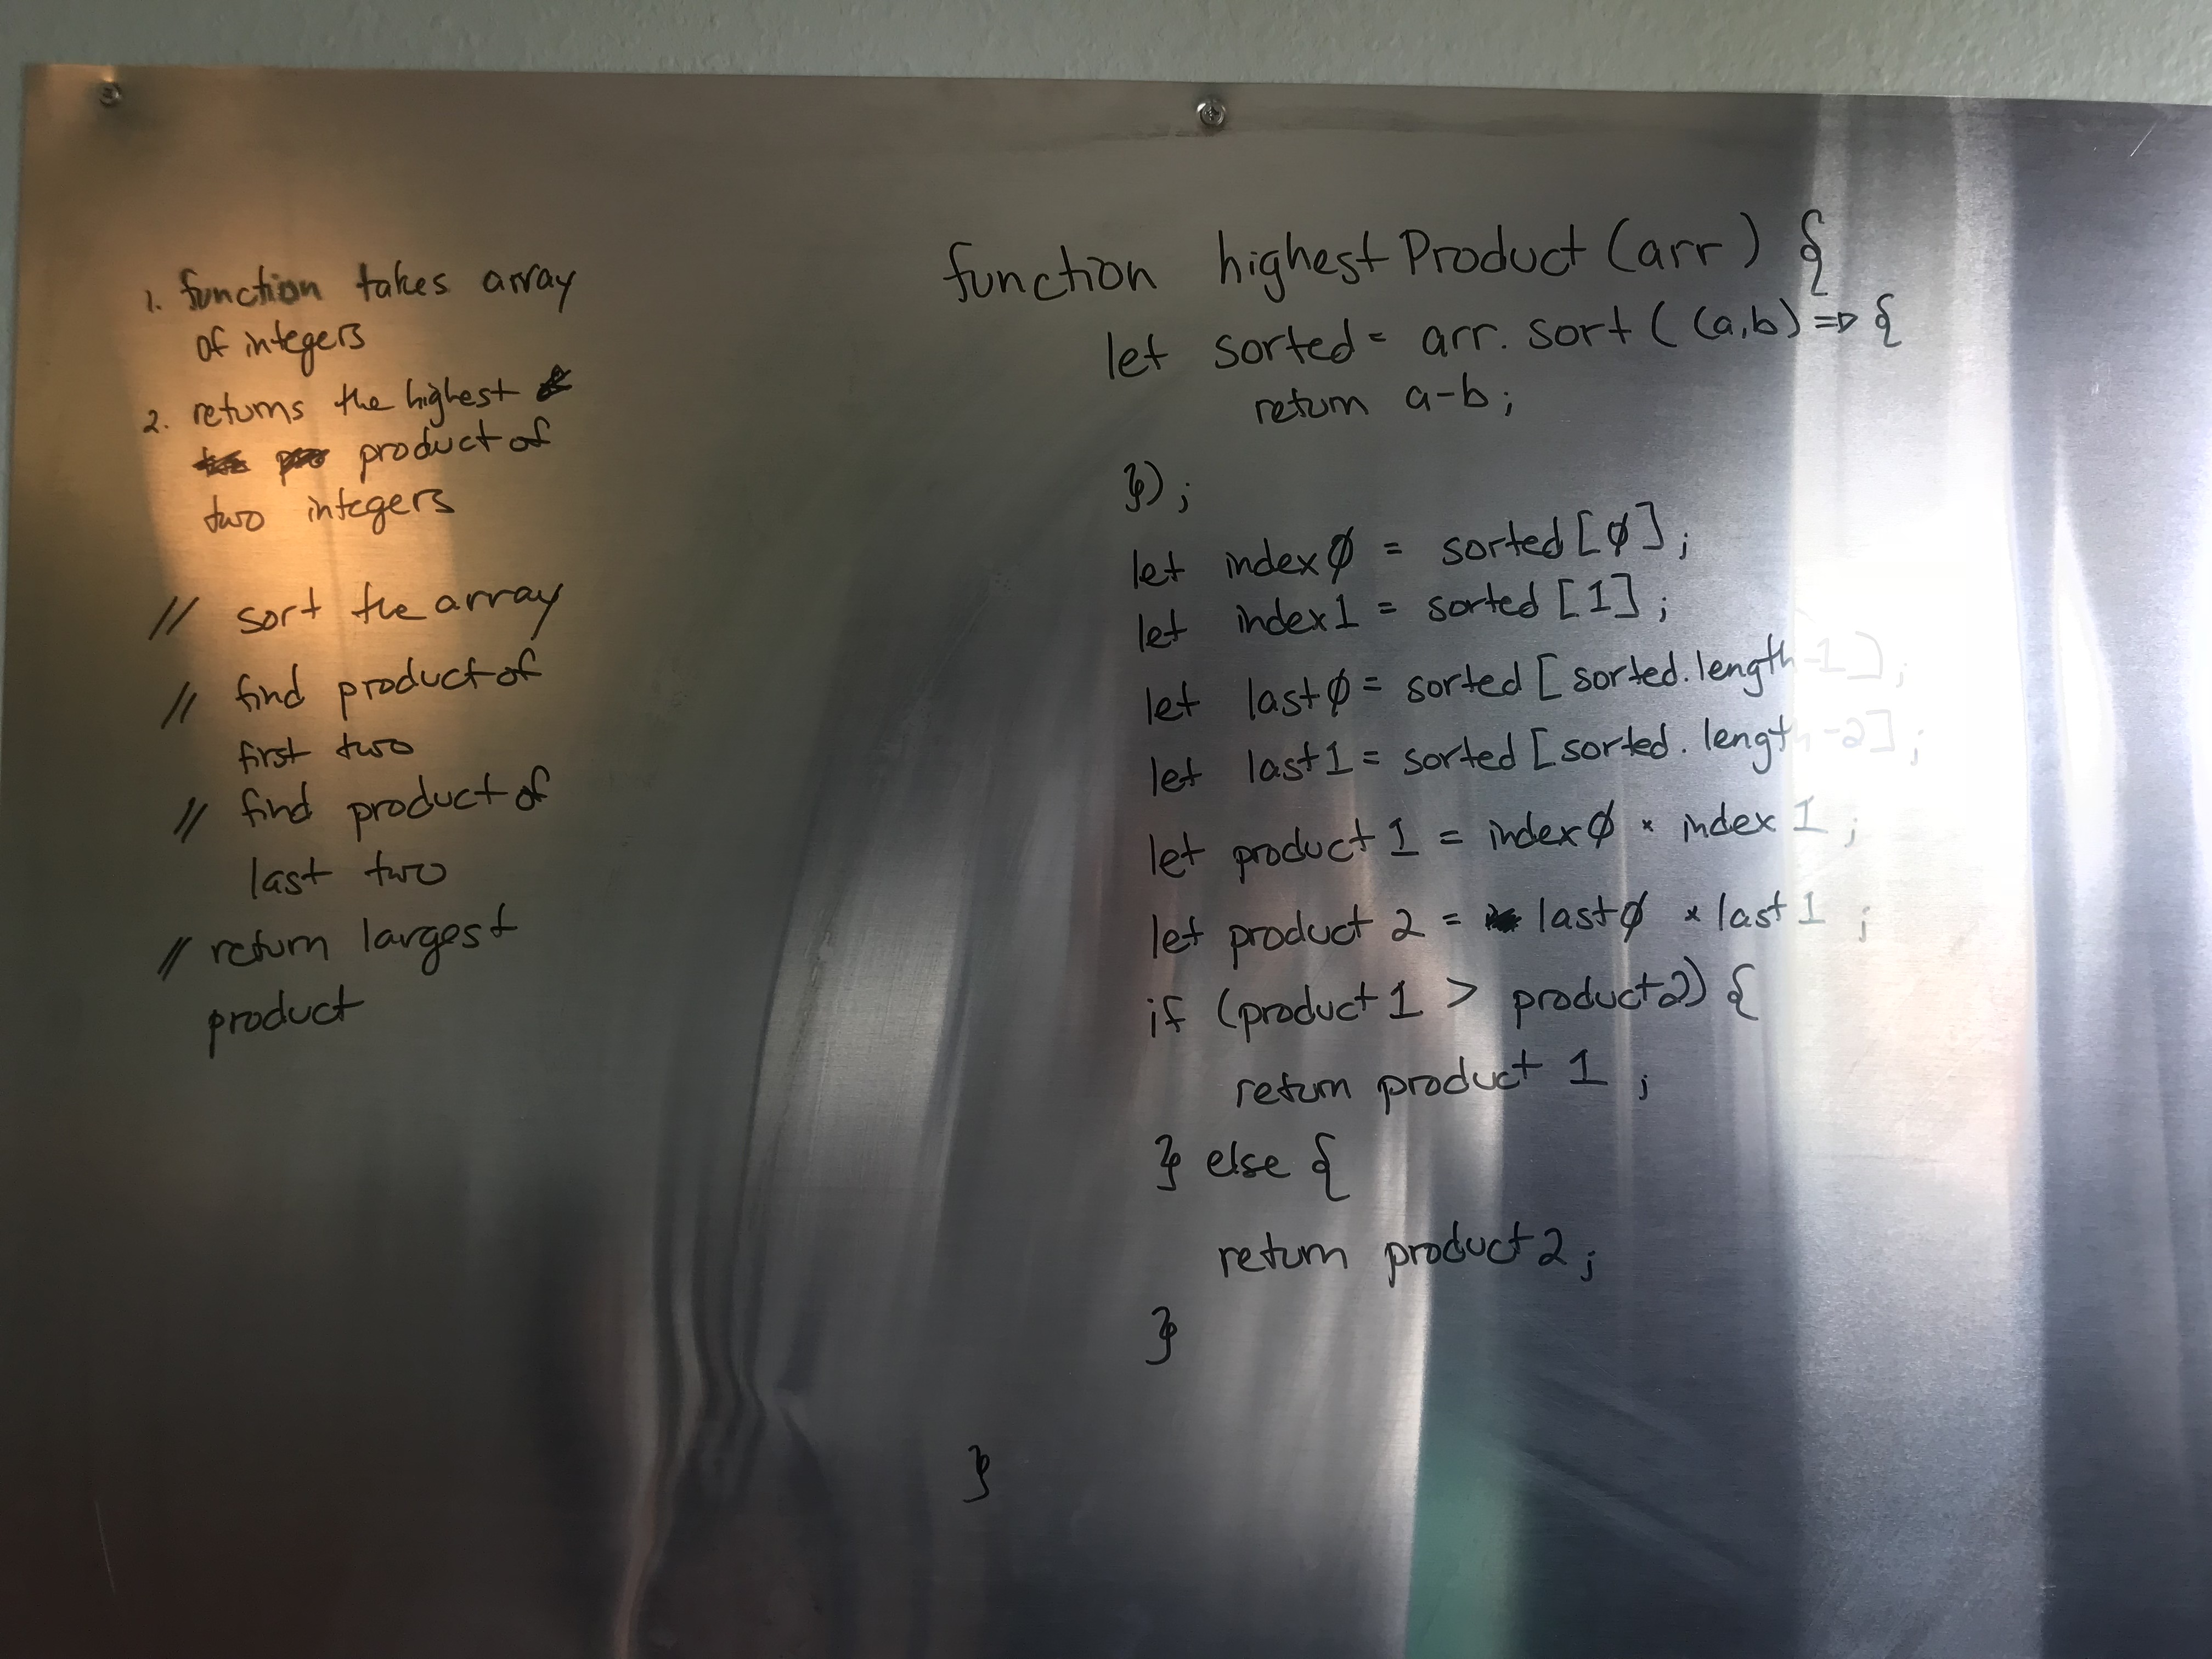 1. function takes array
of integers
2. returns the highest
product of
two integers
// sort the array
// find product of
first two
// find product of
last two
// return largest
product
function highestProduct (arr) {
let sorted = arr. sort ( (a,b) => {
return a-b;
});
let index0 = sorted [0];
let index1 = sorted [1];
let last0 = sorted [ sorted.length -1];
let last1 = sorted [sorted. length -2];
let product 1 = index0 * index 1;
let product 2 = last0 * last 1 ;
if (product 1 > product2) {
return product 1 ;
} else {
return product 2;
}
}